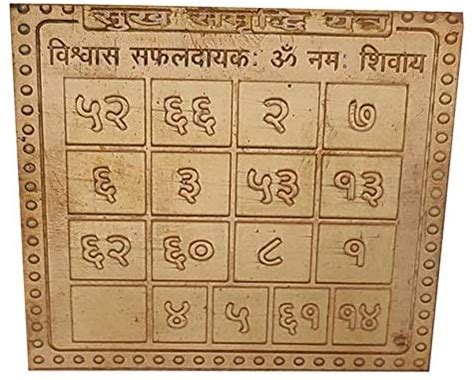 सुख समृद्धि यंत्र
विश्वास सफलदायक: ॐ नम: शिवाय
५२ ६६ २ ७
६ ३ ५३ १३
६२ ६० ८ १
४ ५ ६१ १४